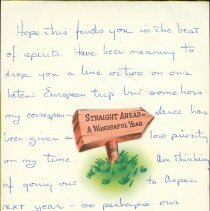 Hope this finds you in the best
of spirits. Have been meaning to
drop you a line or two on our
late European trip but somehow
my correspon- dence has
STRAIGHT AHEAD—
A WONDERFUL YEAR
been given a low priority
on my time. Am thinking
of going out to Aspen
next year - so perhaps our